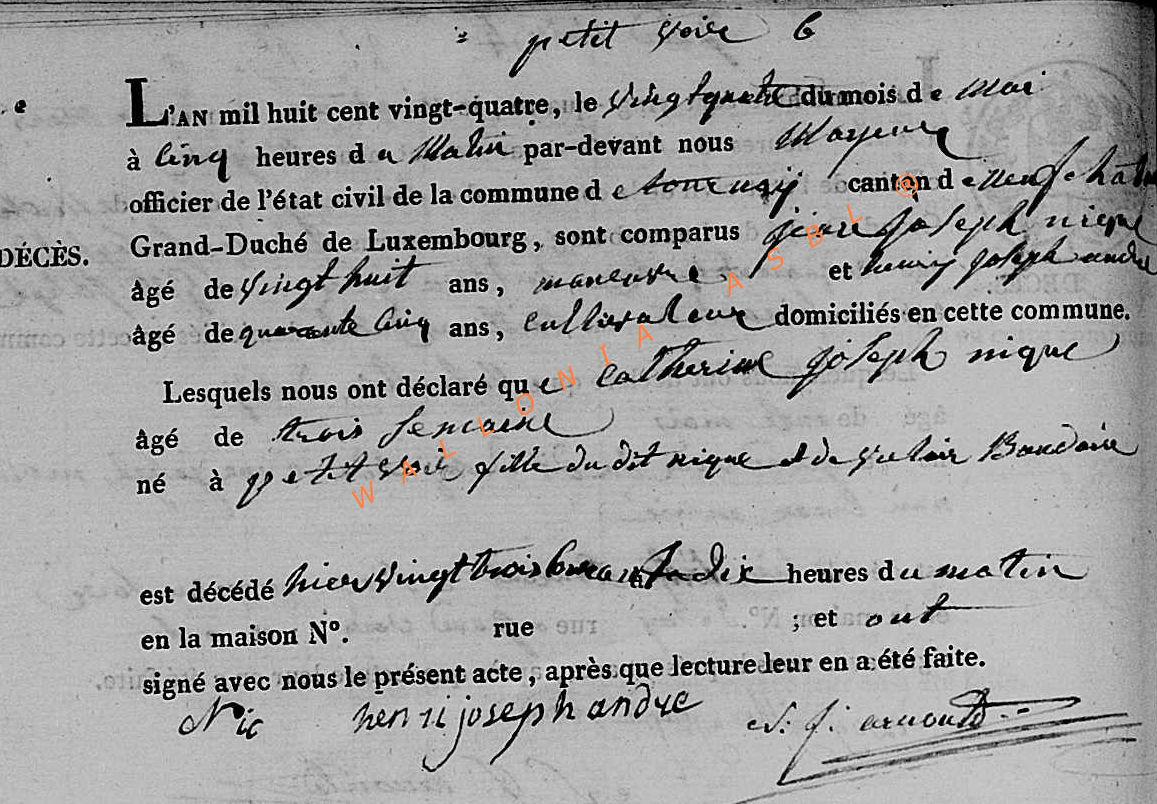 petit voire 6
L'AN mil huit cent vingt-quatre, le vingt quatre du mois de Mai
à cinq heures du Matin par-devant nous Mayeur
officier de l'état civil de la commune de tournay canton de neufchateau
DÉCÈS. Grand-Duché de Luxembourg, sont comparus jean joseph nique
âgé de vingt huit ans, maneuvre et henry joseph andre
âgé de quarante cinq ans, cultivateur domiciliés en cette commune.
Lesquels nous ont déclaré que catherine joseph nique
âgé de trois semaine
né à petit voir fille du dit nique et de Baudoin
est décédé hier vingt trois courant a dix heures du matin
en la maison N°. rue ; et ont
signé avec nous le présent acte, après que lecture leur en a été faite.
Nic henri joseph andre J. arnould
WALLONIA ASBL @